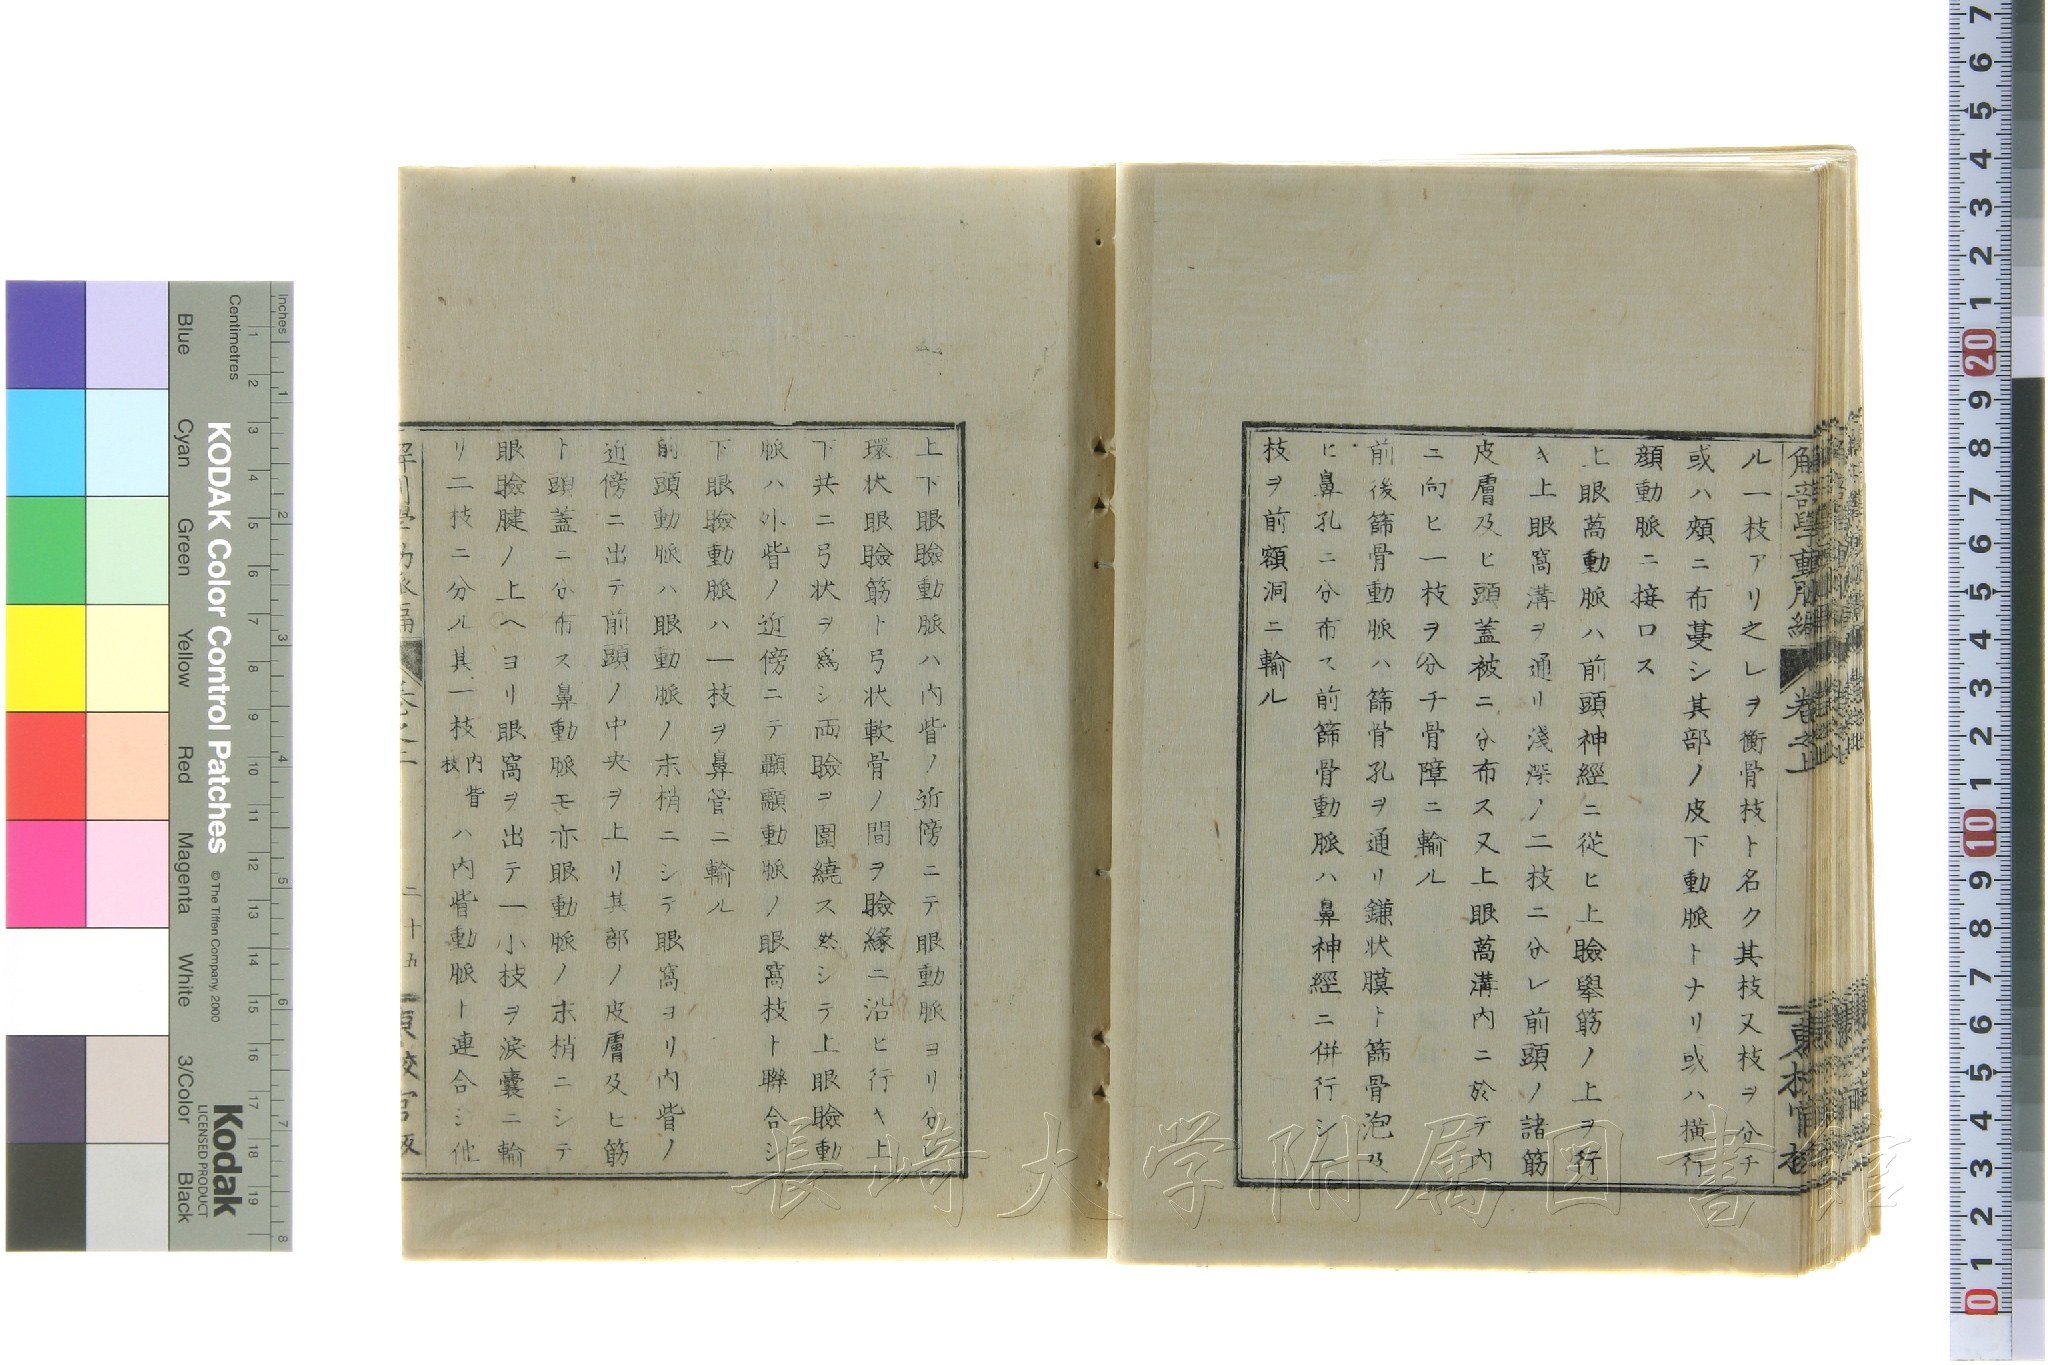 ル一枝アリ之レヲ衝骨枝ト名ク其枝又枝ヲ分チ
或ハ頰ニ布蔓シ其部ノ皮下動脈トナリ或ハ横行
顔動脈ニ接口ス
上眼萵動脈ハ前頭神經ニ從ヒ上瞼擧筋ノ上ヲ行
キ上眼窩溝ヲ通リ淺深ノ二枝ニ分レ前頭ノ諸筋
皮膚及ヒ頭蓋被ニ分布ス又上眼萵溝内ニ於テ内
ニ向ヒ一枝ヲ分チ骨障ニ輸ル
前後篩骨動脈ハ篩骨孔ヲ通リ鎌状膜ト篩骨泡及
ヒ鼻孔ニ分布ス前篩骨動脈ハ鼻神經ニ併行シ
枝ヲ前額洞ニ輸ル
上下眼瞼動脈ハ内眥ノ近傍ニテ眼動脈ヨリ分レ
環状眼瞼筋ト弓状軟骨ノ間ヲ瞼縁ニ沿ヒ行キ上
下共ニ弓状ヲ爲シ両瞼ヲ圍繞ス然シテ上眼瞼動
脈ハ外眥ノ近傍ニテ顳顬動脈ノ眼窩枝ト聯合シ
下眼瞼動脈ハ一枝ヲ鼻管ニ輸ル
前頭動脈ハ眼動脈ノ末梢ニシテ眼窩ヨリ内眥ノ
近傍ニ出テ前頭ノ中央ヲ上リ其部ノ皮膚及ヒ筋
ト頭蓋ニ分布ス鼻動脈モ亦眼動脈ノ末梢ニシテ
眼瞼腱ノ上ヘヨリ眼窩ヲ出テ一小枝ヲ涙囊ニ輸
リ二枝ニ分ル其一枝内眥枝ハ内眥動脈ト連合シ他
解剖學動脈編 卷之二 二十五
長崎大学附属図書館
KODAK Color Control Patches
© The Tiffen Company, 2000
Kodak
LICENSED PRODUCT
Inches 1 2 3 4 5 6 7 8
Centimetres 1 2 3 4 5 6 7 8 9 10 11 12 13 14 15 16 17 18 19
Blue Cyan Green Yellow Red Magenta White 3/Color Black
7 6 5 4 3 2 1 20 9 8 7 6 5 4 3 2 1 10 9 8 7 6 5 4 3 2 1 0